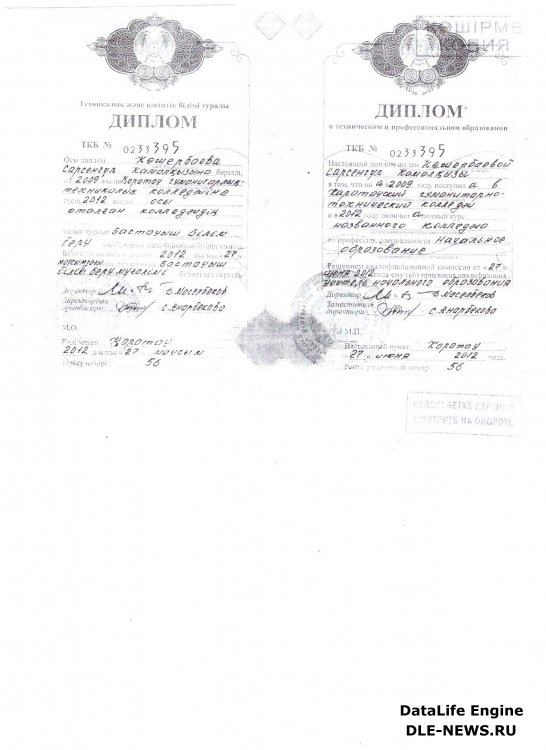 Техникалық және кәсіптік білімі туралы
ДИПЛОМ
ТКБ № 0233395
Осы диплом Көшербаева
Сарсенгул Камалқызына берілді,
ол 2009 жылы Қаратау гуманитарлық-
техникалық колледжіне
түсіп, 2012 жылы осы
аталған колледждің
толық курсын Бастауыш білім
беру
2012 27
маусымы Бастауыш
білім беру мұғалімі
Директор Б.Масербеков
Директордың
орынбасары С.Анарбекова
М.О.
Елді мекен Қаратау
2012 жылғы 27 маусым
Тіркеу нөмірі 56
КӨШІРМЕ
КОПИЯ
ДИПЛОМ
о техническом и профессиональном образовании
ТКБ № 0233395
Настоящий диплом выдан Көшербаевой
Сарсенгул Камалқизы
в том, что он а 2009 году поступил а в
Каратауский гуманитарно-
технический колледж
и в 2012 году окончил а полный курс
названного колледжа
по профессии, специальности начальное
образование
Решением квалификационной комиссии от «27»
июня 2012 года ему (ей) присвоена квалификация
учителя начального образования
Директор Б.Масербеков
Заместитель
директора С.Анарбекова
М.П.
Населенный пункт Каратау
«27» июня 2012 года.
Регистрационный номер 56
КЕЛЕСІ БЕТКЕ ҚАРАҢЫЗ
СМОТРИТЕ НА ОБОРОТЕ
DataLife Engine
DLE-NEWS.RU